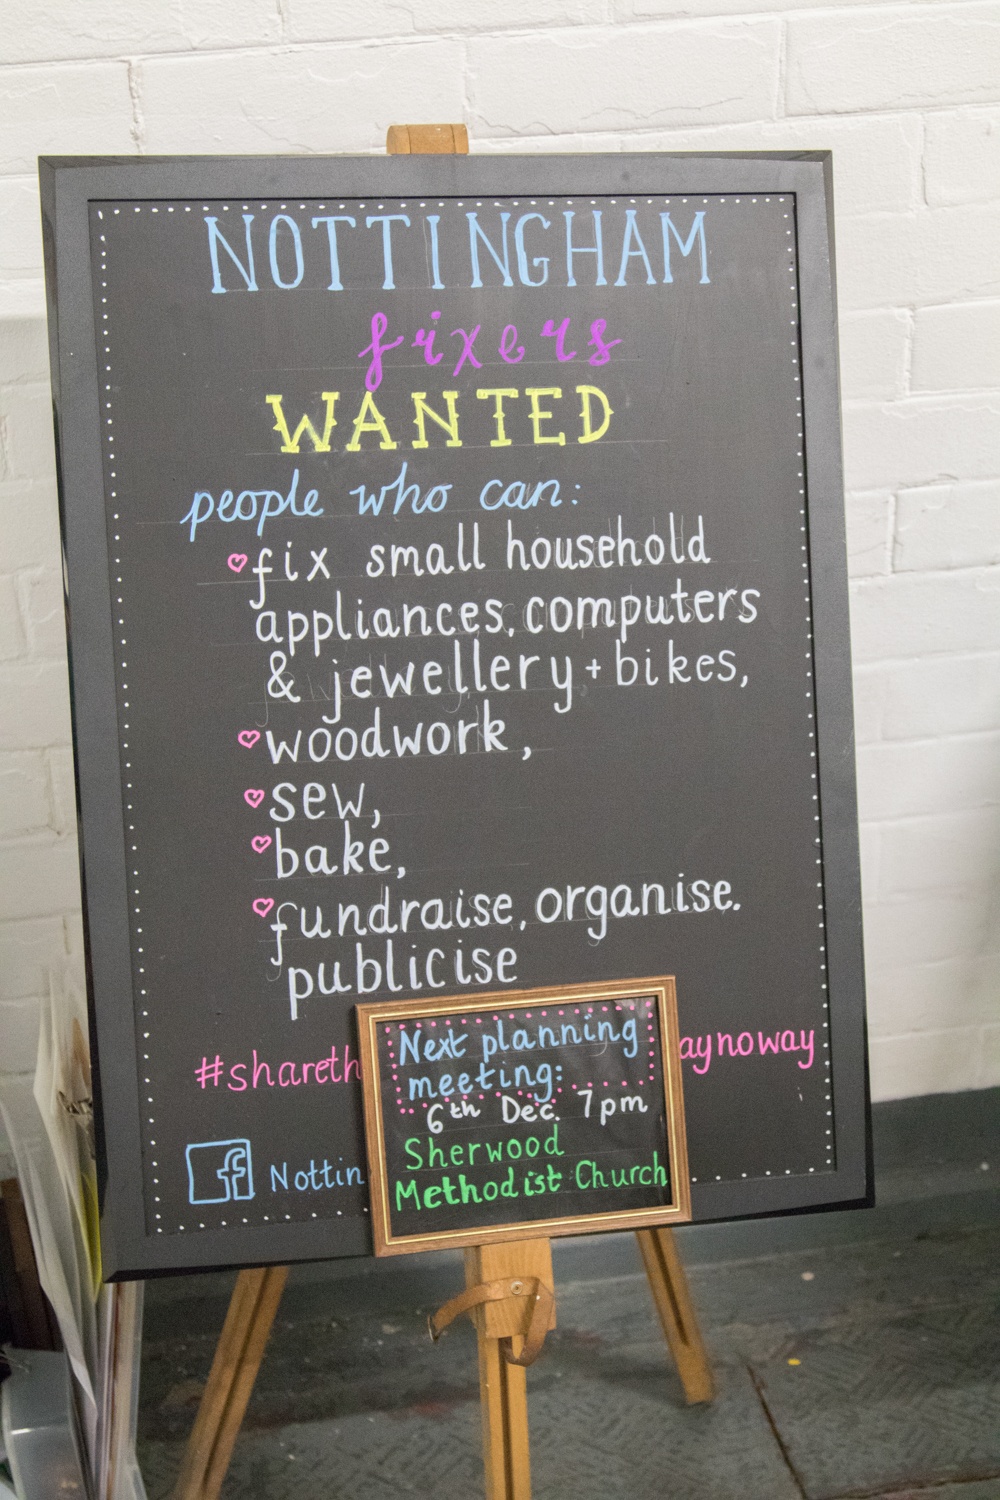 NOTTINGHAM
fixers
WANTED
people who can:
fix small household
appliances, computers
& jewellery + bikes,
woodwork,
sew,
bake,
fundraise, organise.
publicise
#shareth aynoway
Nottin
Next planning
meeting:
6th Dec. 7pm
Sherwood
Methodist Church